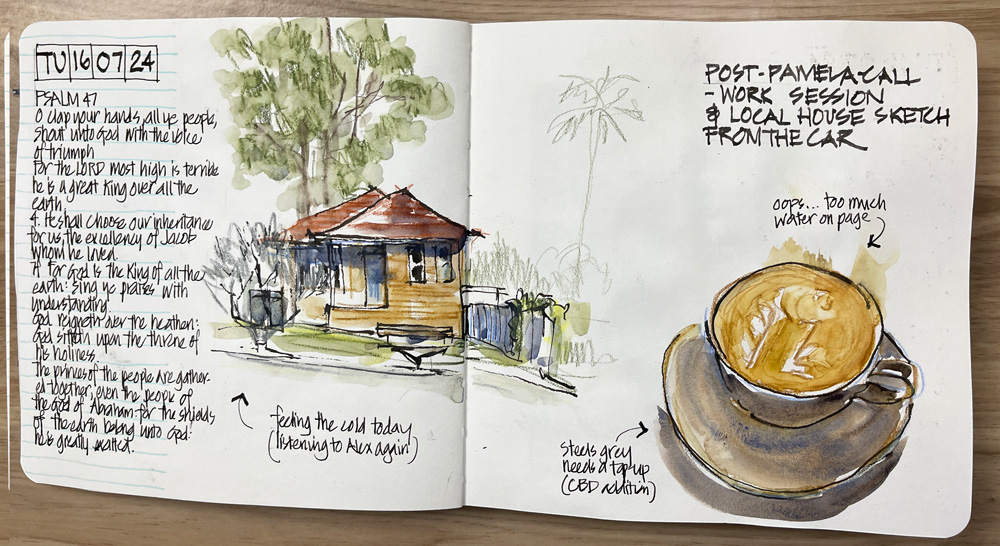 TU 16 07 24
PSALM 47
O clap your hands, all ye people,
shout unto God with the voice
of triumph
For the LORD most high is terrible
he is a great King over all the
earth.
4. He shall choose our inheritance
for us, the excellency of Jacob
whom he loved.
7. For God is the King of all the
earth: sing ye praises with
understanding
God reigneth over the heathen:
God sitteth upon the throne of
his holiness.
The princes of the people are gather-
ed together, even the people of
the God of Abraham: for the shields
of the earth belong unto God:
he is greatly exalted.
feeling the cold today
(listening to Alex again)
POST-PAMELA-CALL
- WORK SESSION
& LOCAL HOUSE SKETCH
FROM THE CAR
oops... too much
water on page
Steels grey
needs a top up
(CBD addition)